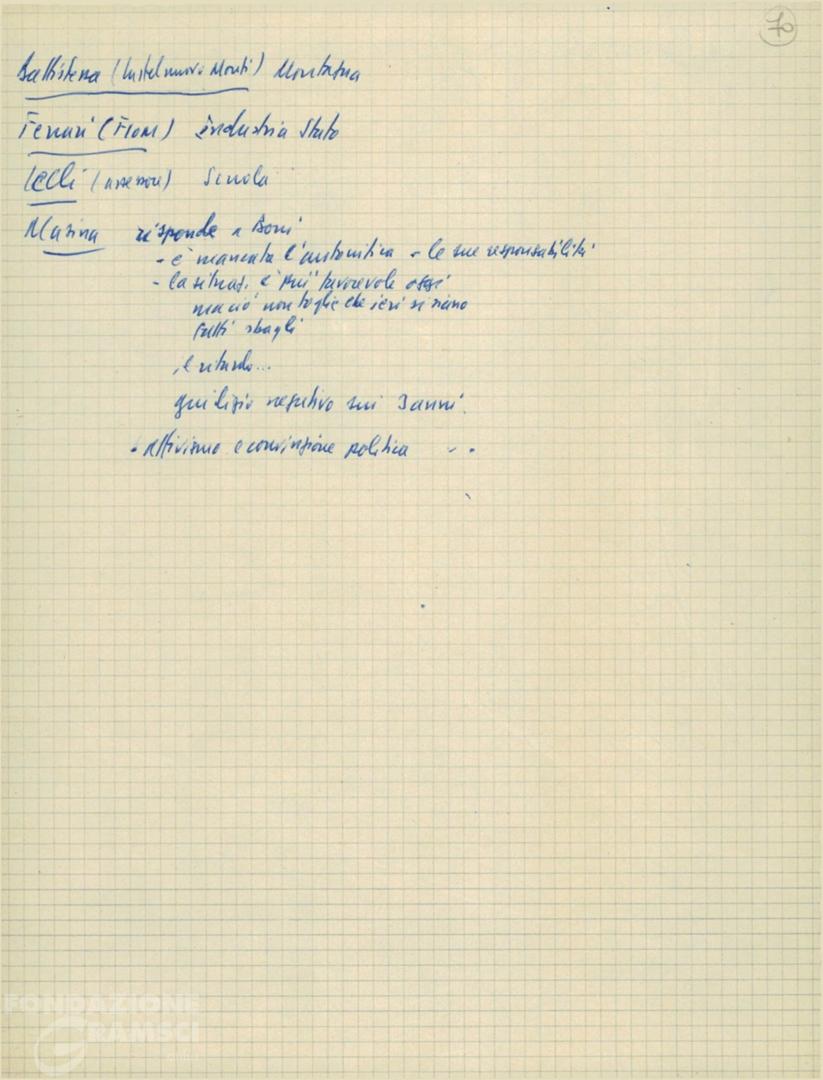 70
Battistessa (Castelnuovo Monti) Montagna
Ferrari (FIOM) industria Stato
Lelli (assessore) Scuola
Masina risponde a Boni
- è mancata l'autocritica - le sue responsabilità
- la situaz. è più favorevole oggi
ma ciò non toglie che ieri si siano
fatti sbagli
, e ritardo...
giudizio negativo sui 3 anni.
- attivismo e convinzione politica
FONDAZIONE
GRAMSCI